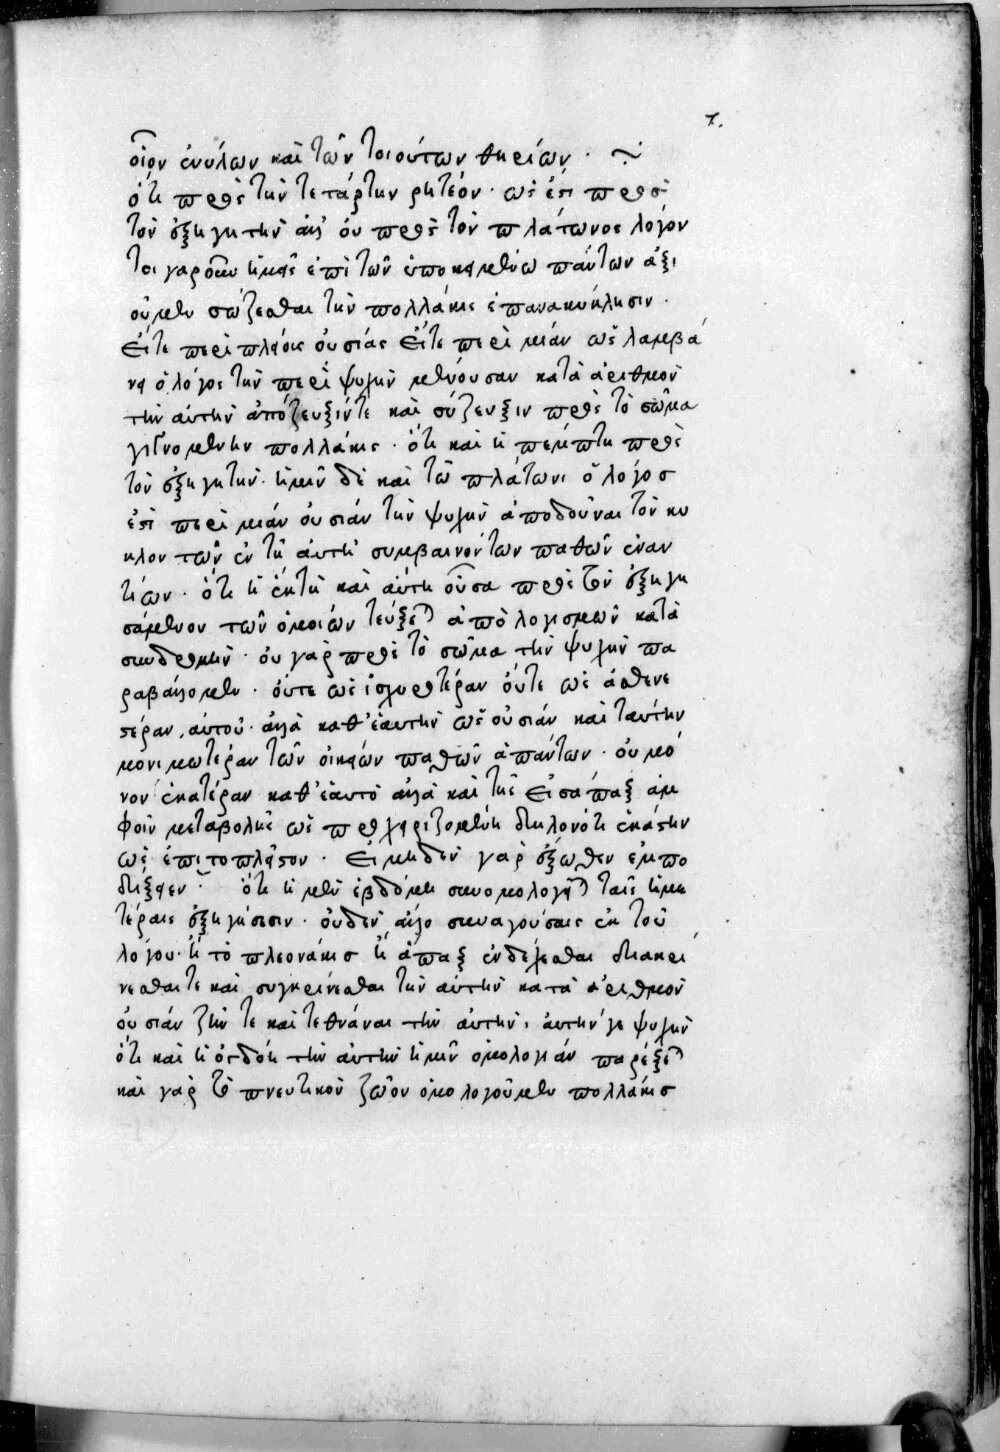 7.
οἷον ἐνύλων καὶ τῶν τοιούτων θηρίων · ~
ὅτι πρὸς τὴν τετάρτην ῥητέον · ὡς ἔστι πρὸς
τὸν ἐξηγητὴν ἀλλ' οὐ πρὸς τὸν πλάτωνος λόγον
τοι γαροῦν ἡμεῖς ἐπὶ τῶν ὑποκειμένων πάντων ἀξι
οῦμεν σώζεσθαι τὴν πολλάκις ἐπανακύκλησιν ·
εἴτε περὶ πλείους οὐσίας εἴτε περὶ μίαν ὡς λαμβά
νει ὁ λόγος τὴν περὶ ψυχὴν μένουσαν κατὰ ἀριθμὸν
τὴν αὐτὴν ἀπόζευξίν τε καὶ σύζευξιν πρὸς τὸ σῶμα
γιγνομένην πολλάκις · ὅτι καὶ ἡ πέμπτη πρὸς
τὸν ἐξηγητήν · ἡμῖν δὲ καὶ τῷ πλάτωνι ὁ λόγος
ἐστὶ περὶ μίαν οὐσίαν τὴν ψυχὴν ἀποδοῦναι τὸν κύ
κλον τῶν ἐν τῇ αὐτῇ συμβαινόντων παθῶν ἐναν
τίων · ὅτι ἡ ἕκτη καὶ αὐτὴ οὖσα πρὸς τὸν ἐξηγη
σάμενον τῶν ὁμοίων τεύξεται ἀπολογισμῶν κατὰ
συνδρομὴν · οὐ γὰρ πρὸς τὸ σῶμα τὴν ψυχὴν πα
ραβάλλομεν · οὔτε ὡς ἰσχυροτέραν οὔτε ὡς ἀσθενε
στέραν αὐτοῦ · ἀλλὰ καθ' ἑαυτὴν ὡς οὐσίαν καὶ ταύτην
μονιμωτέραν τῶν οἰκείων παθῶν ἁπάντων · οὐ μό
νον ἑκατέραν καθ' ἑαυτὸ ἀλλὰ καὶ τῆς εἰσάπαξ ἀμ
φοῖν μεταβολῆς ὡς προχειριζομένη δηλονότι ἑκάστην
ὡς ἐπιτοπλεῖστον · εἰ μηδὲν γὰρ ἔξωθεν ἐμπο
δίζειεν · ὅτι ἡ μὲν ἑβδόμη συνομολογεῖται ταῖς ἡμε
τέραις ἐξηγήσεσιν · οὐδὲν ἄλλο συναγούσαις ἐκ τοῦ
λόγου · ἢ τὸ πλεονάκις ἢ ἅπαξ ἐνδέχεσθαι διακρί
νεσθαι τε καὶ συγκρίνεσθαι τὴν αὐτὴν κατὰ ἀριθμὸν
οὐσίαν ζῆν τε καὶ τεθνάναι τὴν αὐτὴν, αὐτήν γε ψυχὴν
ὅτι καὶ ἡ ὀγδόη τὴν αὐτὴν ἡμῖν ὁμολογίαν παρέξεται
καὶ γὰρ τὸ πνευτικὸν ζῷον ὁμολογοῦμεν πολλάκις